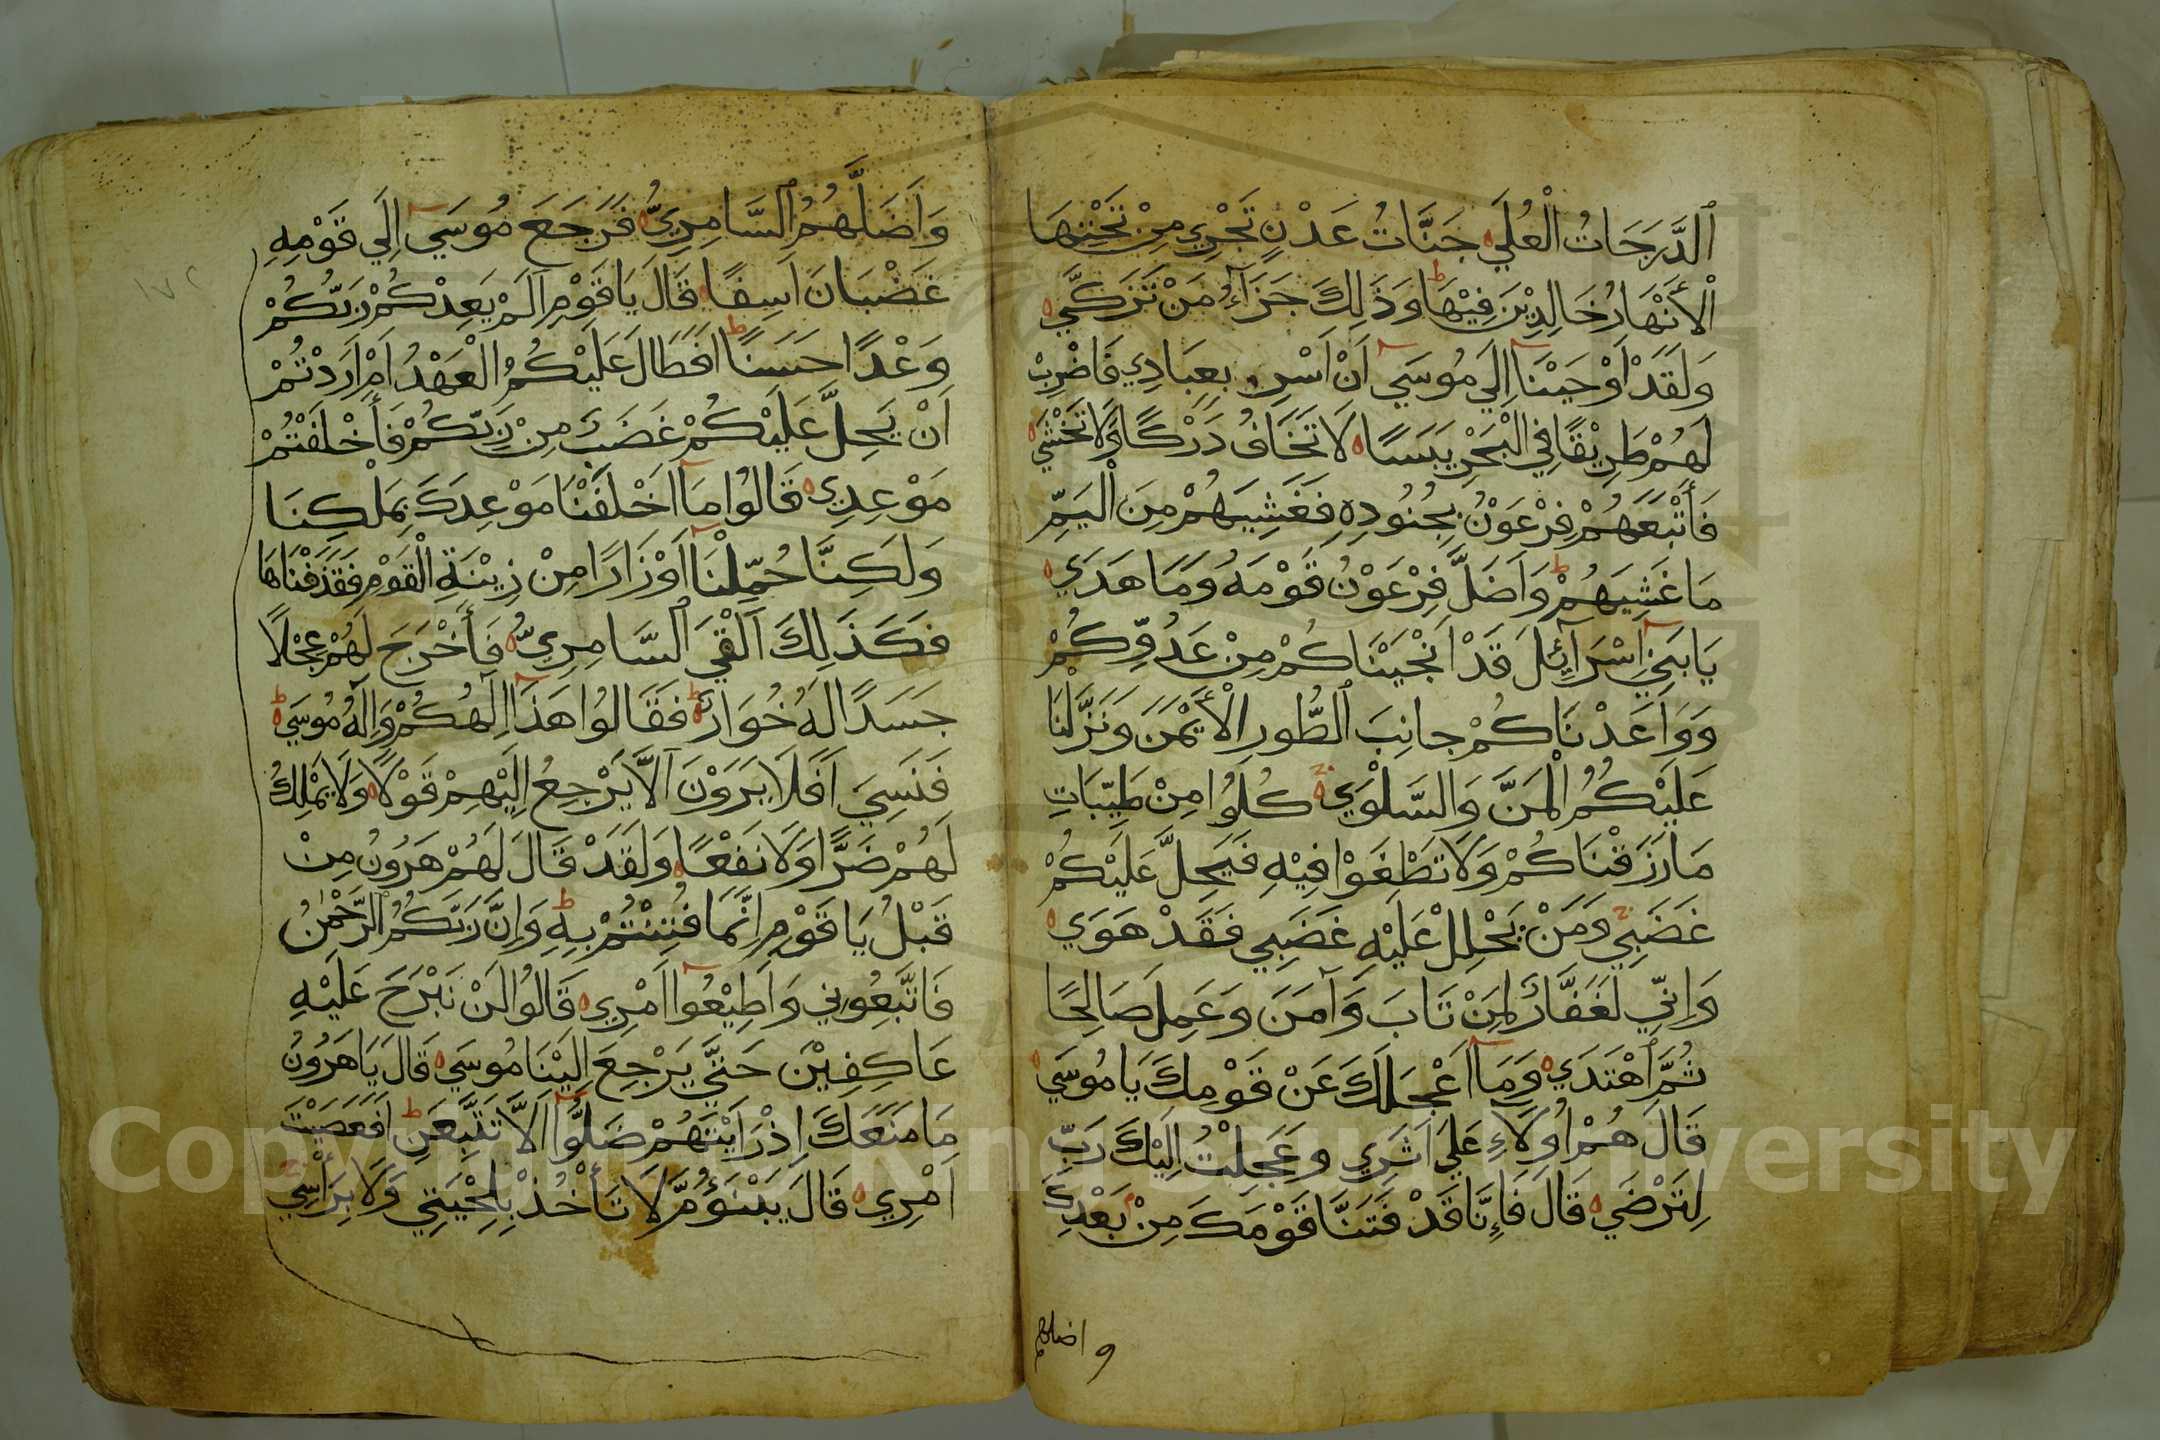 ٱلدَّرَجَاتُ الْعُلَي جَنَّاتُ عَدْنٍ تَجْرِي مِنْ تَحْتِهَا
الْأَنْهَارُ خَالِدِيْنَ فِيْهَا وَذَلِكَ جَزَآءُ مَنْ تَزَكَّي
وَلَقَدْ اَوْحَيْنَآ اِلَي مُوسَي اَنْ اَسْرِ بِعِبَادِي فَاضْرِبْ
لَهُمْ طَرِيْقًا فِي الْبَحْرِ يَبَسًا لَا تَخَافُ دَرْكًا وَلَا تَخْشَي
فَأَتْبَعَهُمْ فِرْعَوْنُ بِجُنُودِهِ فَغَشِيَهُمْ مِنَ الْيَمِّ
مَا غَشِيَهُمْ وَاَضَلَّ فِرْعَوْنُ قَوْمَهُ وَمَا هَدَي
يَا بَنِي اِسْرَآئِلَ قَدْ اَنْجَيْنَاكُمْ مِنْ عَدُوِّكُمْ
وَوَاعَدْنَاكُمْ جَانِبَ ٱلطُّورِ الْأَيْمَنَ وَنَزَّلْنَا
عَلَيْكُمُ الْمَنَّ وَالسَّلْوَي كُلُوا مِنْ طَيِّبَاتِ
مَا رَزَقْنَاكُمْ وَلَا تَطْغَوْا فِيْهِ فَيَحِلَّ عَلَيْكُمْ
غَضَبِي وَمَنْ يَحْلِلْ عَلَيْهِ غَضَبِي فَقَدْ هَوَي
وَاِنِّي لَغَفَّارٌ لِمَنْ تَابَ وَآمَنَ وَعَمِلَ صَالِحًا
ثُمَّ ٱهْتَدَي وَمَآ اَعْجَلَكَ عَنْ قَوْمِكَ يَا مُوسَي
قَالَ هُمْ اُولَآءِ عَلَي اَثَرِي وَعَجِلْتُ اِلَيْكَ رَبِّ
لِتَرْضَي قَالَ فَإِنَّا قَدْ فَتَنَّا قَوْمَكَ مِنْ بَعْدِكَ
و اضلهم
وَاَضَلَّهُمُ ٱلسَّامِرِيُّ فَرَجَعَ مُوسَي اِلَي قَوْمِهِ
غَضْبَانَ اَسِفًا قَالَ يَا قَوْمِ اَلَمْ يَعِدْكُمْ رَبُّكُمْ
وَعْدًا حَسَنًا اَفَطَالَ عَلَيْكُمُ الْعَهْدُ اَمْ اَرَدْتُمْ
اَنْ يَحِلَّ عَلَيْكُمْ غَضَبٌ مِنْ رَبِّكُمْ فَأَخْلَفْتُمْ
مَوْعِدِي قَالُوا مَآ اَخْلَفْنَا مَوْعِدَكَ بِمَلْكِنَا
وَلَكِنَّا حُمِّلْنَآ اَوْزَارًا مِنْ زِيْنَةِ الْقَوْمِ فَقَذَفْنَاهَا
فَكَذَلِكَ اَلْقَي ٱلسَّامِرِيُّ فَأَخْرَجَ لَهُمْ عِجْلًا
جَسَدًا لَهُ خُوَارٌ فَقَالُوا هَذَآ اِلَهُكُمْ وَاِلَهُ مُوسَي
فَنَسِيَ اَفَلَا يَرَوْنَ اَلَّا يَرْجِعُ اِلَيْهِمْ قَوْلًا وَلَا يَمْلِكُ
لَهُمْ ضَرًّا وَلَا نَفْعًا وَلَقَدْ قَالَ لَهُمْ هَرُونُ مِنْ
قَبْلُ يَا قَوْمِ اِنَّمَا فُتِنْتُمْ بِهِ وَاِنَّ رَبَّكُمُ ٱلرَّحْمٰنُ
فَاتَّبِعُونِي وَاَطِيْعُوآ اَمْرِي قَالُوا لَنْ نَبْرَحَ عَلَيْهِ
عَاكِفِيْنَ حَتَّي يَرْجِعَ اِلَيْنَا مُوسَي قَالَ يَا هَرُونُ
مَا مَنَعَكَ اِذْ رَاَيْتَهُمْ ضَلُّوآ اَلَّا تَتَّبِعَنِ اَفَعَصَيْتَ
اَمْرِي قَالَ يَبْنَؤُمَّ لَا تَأْخُذْ بِلِحْيَتِي وَلَا بِرَأْسِي
١٧٢
Copyright © King Saud University